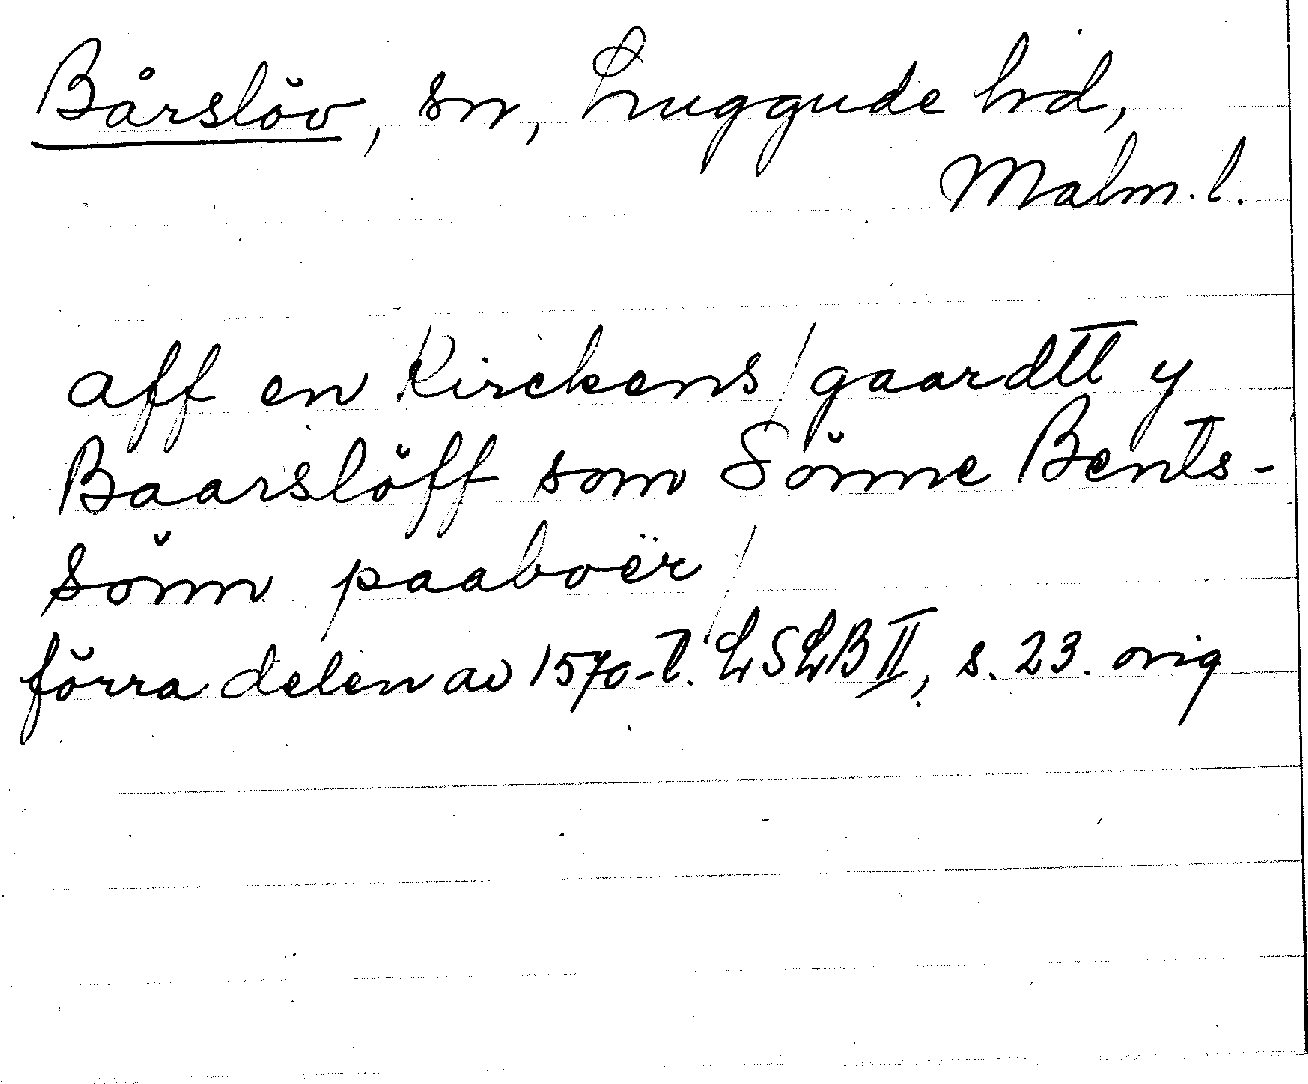 Bårslöv, sn, Luggude hd,
Malm. l.
aff en Kirckens / gaardtt y
Baarslöff som Sönne Bents-
sönn paaboër /
förra delen av 1570-t. LSLB II, s. 23. orig